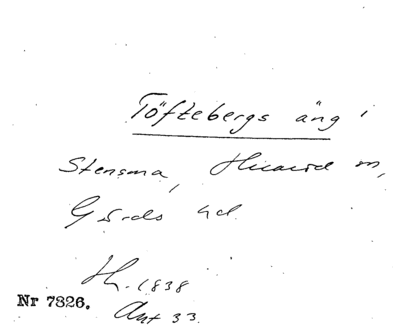 Töftebergs äng i
Stensma, Hvarvd m,
Gärds hd.
H. 1838
Nr 7826.
Akt 33.